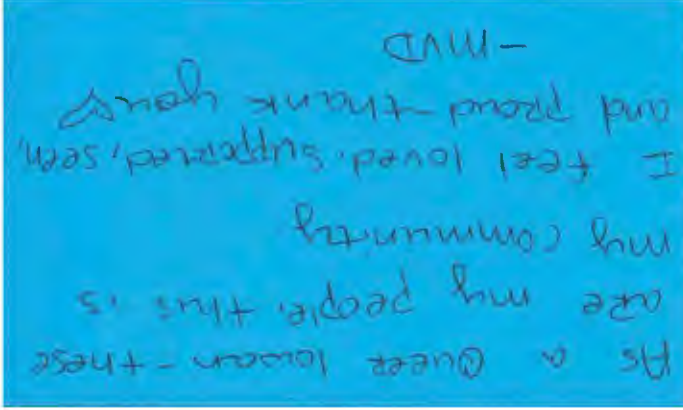 As a Queer Iowan - these
are my people, this is
my community
I feel loved, supported, seen,
and proud - thank you
- MVD